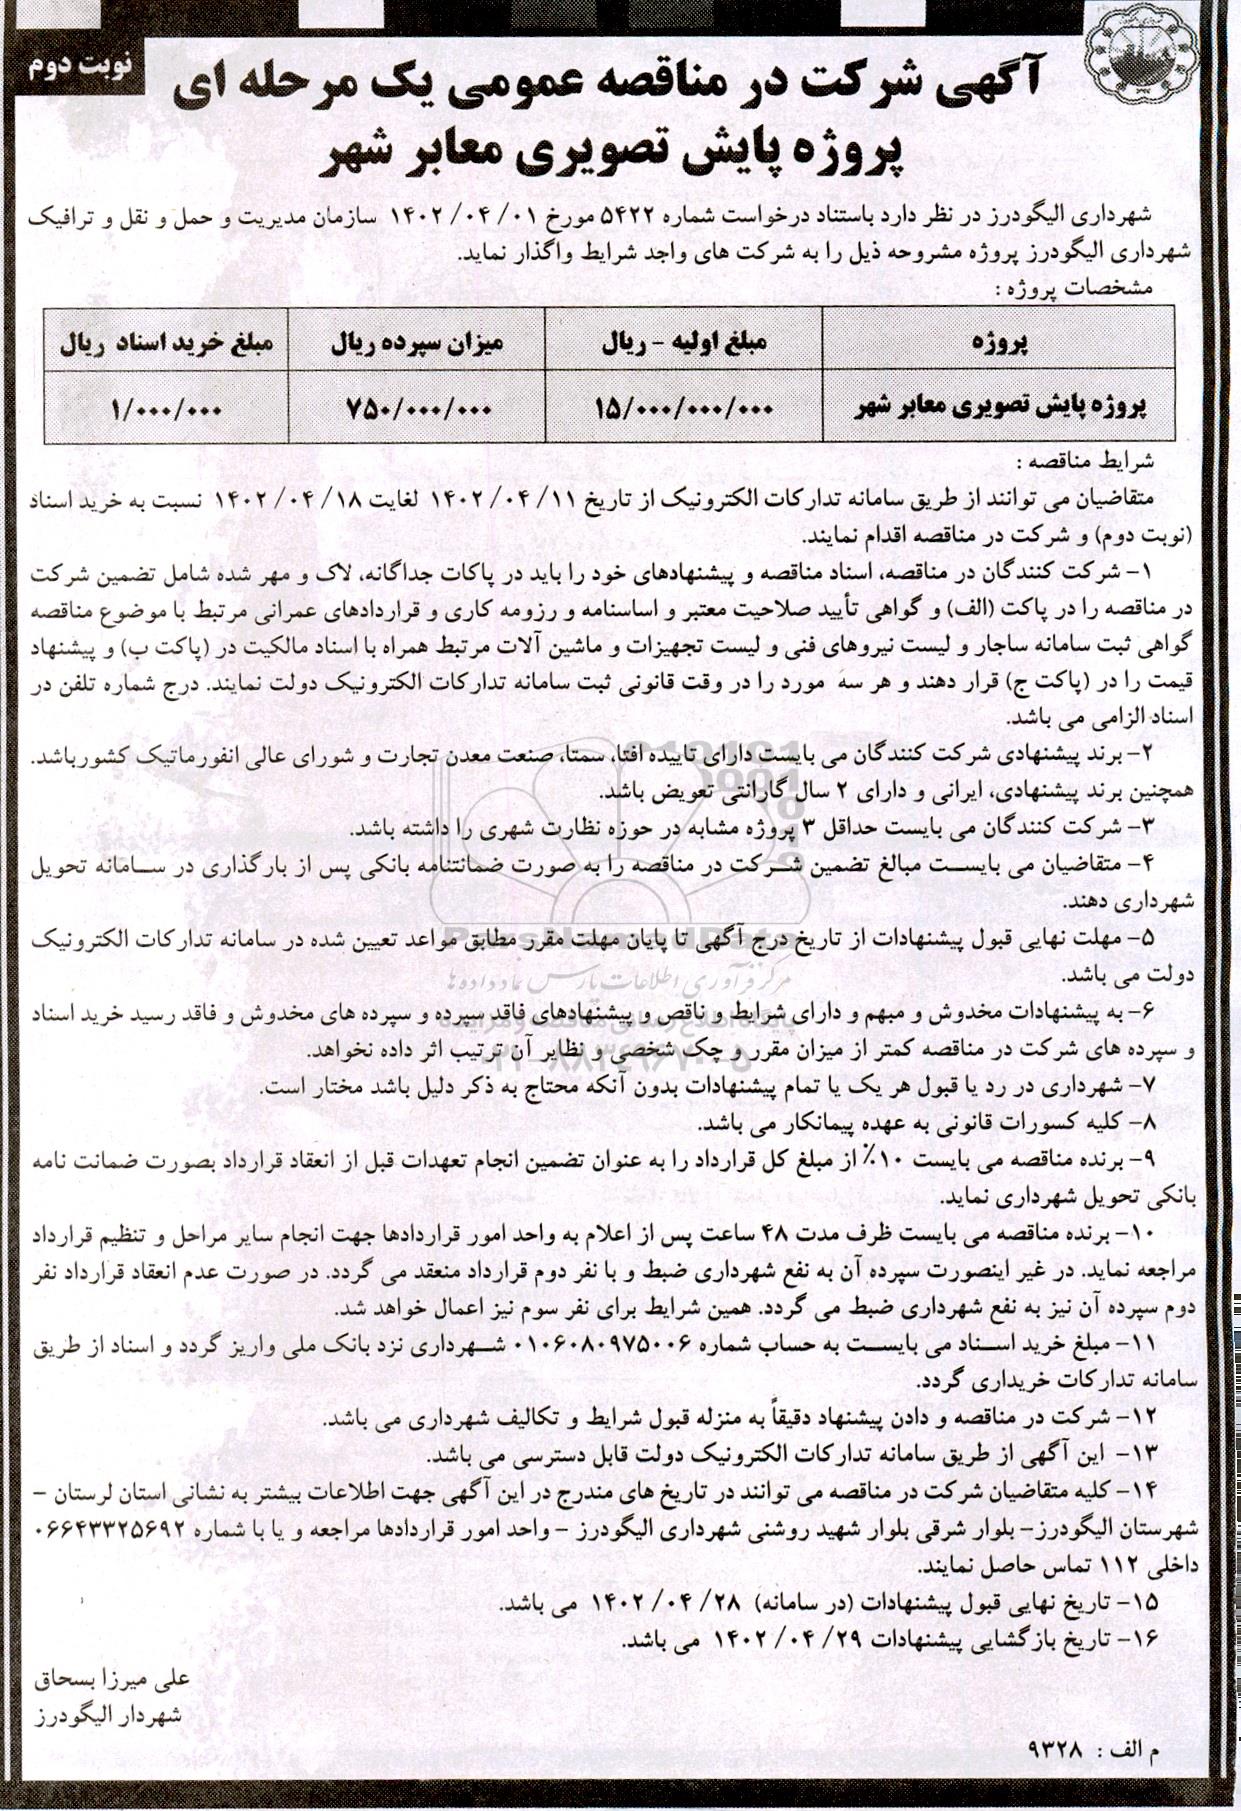 نوبت دوم
آگهی شرکت در مناقصه عمومی یک مرحله ای
پروژه پایش تصویری معابر شهر
شهرداری الیگودرز در نظر دارد باستناد درخواست شماره ۵۴۲۲ مورخ ۱۴۰۲/۰۴/۰۱ سازمان مدیریت و حمل و نقل و ترافیک
شهرداری الیگودرز پروژه مشروحه ذیل را به شرکت های واجد شرایط واگذار نماید.
مشخصات پروژه :
پروژه | مبلغ اولیه - ریال | میزان سپرده ریال | مبلغ خرید اسناد ریال
پروژه پایش تصویری معابر شهر | ۱۵/۰۰۰/۰۰۰/۰۰۰ | ۷۵۰/۰۰۰/۰۰۰ | ۱/۰۰۰/۰۰۰
شرایط مناقصه :
متقاضیان می توانند از طریق سامانه تدارکات الکترونیک از تاریخ ۱۴۰۲/۰۴/۱۱ لغایت ۱۴۰۲/۰۴/۱۸ نسبت به خرید اسناد
(نوبت دوم) و شرکت در مناقصه اقدام نمایند.
۱- شرکت کنندگان در مناقصه، اسناد مناقصه و پیشنهادهای خود را باید در پاکات جداگانه، لاک و مهر شده شامل تضمین شرکت
در مناقصه را در پاکت (الف) و گواهی تأیید صلاحیت معتبر و اساسنامه و رزومه کاری و قراردادهای عمرانی مرتبط با موضوع مناقصه
گواهی ثبت سامانه ساجار و لیست نیروهای فنی و لیست تجهیزات و ماشین آلات مرتبط همراه با اسناد مالکیت در (پاکت ب) و پیشنهاد
قیمت را در (پاکت ج) قرار دهند و هر سه مورد را در وقت قانونی ثبت سامانه تدارکات الکترونیک دولت نمایند. درج شماره تلفن در
اسناد الزامی می باشد.
۲- برند پیشنهادی شرکت کنندگان می بایست دارای تاییده افتا، سمتا، صنعت معدن تجارت و شورای عالی انفورماتیک کشورباشد.
همچنین برند پیشنهادی، ایرانی و دارای ۲ سال گارانتی تعویض باشد.
۳- شرکت کنندگان می بایست حداقل ۳ پروژه مشابه در حوزه نظارت شهری را داشته باشد.
۴- متقاضیان می بایست مبالغ تضمین شرکت در مناقصه را به صورت ضمانتنامه بانکی پس از بارگذاری در سامانه تحویل
شهرداری دهند.
۵- مهلت نهایی قبول پیشنهادات از تاریخ درج آگهی تا پایان مهلت مقرر مطابق مواعد تعیین شده در سامانه تدارکات الکترونیک
دولت می باشد.
۶- به پیشنهادات مخدوش و مبهم و دارای شرایط و ناقص و پیشنهادهای فاقد سپرده و سپرده های مخدوش و فاقد رسید خرید اسناد
و سپرده های شرکت در مناقصه کمتر از میزان مقرر و چک شخصی و نظایر آن ترتیب اثر داده نخواهد.
۷- شهرداری در رد یا قبول هر یک یا تمام پیشنهادات بدون آنکه محتاج به ذکر دلیل باشد مختار است.
۸- کلیه کسورات قانونی به عهده پیمانکار می باشد.
۹- برنده مناقصه می بایست ۱۰٪ از مبلغ کل قرارداد را به عنوان تضمین انجام تعهدات قبل از انعقاد قرارداد بصورت ضمانت نامه
بانکی تحویل شهرداری نماید.
۱۰- برنده مناقصه می بایست ظرف مدت ۴۸ ساعت پس از اعلام به واحد امور قراردادها جهت انجام سایر مراحل و تنظیم قرارداد
مراجعه نماید. در غیر اینصورت سپرده آن به نفع شهرداری ضبط و با نفر دوم قرارداد منعقد می گردد. در صورت عدم انعقاد قرارداد نفر
دوم سپرده آن نیز به نفع شهرداری ضبط می گردد. همین شرایط برای نفر سوم نیز اعمال خواهد شد.
۱۱- مبلغ خرید اسناد می بایست به حساب شماره ۰۱۰۶۰۸۰۹۷۵۰۰۶ شهرداری نزد بانک ملی واریز گردد و اسناد از طریق
سامانه تدارکات خریداری گردد.
۱۲- شرکت در مناقصه و دادن پیشنهاد دقیقاً به منزله قبول شرایط و تکالیف شهرداری می باشد.
۱۳- این آگهی از طریق سامانه تدارکات الکترونیک دولت قابل دسترسی می باشد.
۱۴- کلیه متقاضیان شرکت در مناقصه می توانند در تاریخ های مندرج در این آگهی جهت اطلاعات بیشتر به نشانی استان لرستان -
شهرستان الیگودرز- بلوار شرقی بلوار شهید روشنی شهرداری الیگودرز - واحد امور قراردادها مراجعه و یا با شماره ۰۶۶۴۳۳۲۵۶۹۲
داخلی ۱۱۲ تماس حاصل نمایند.
۱۵- تاریخ نهایی قبول پیشنهادات (در سامانه) ۱۴۰۲/۰۴/۲۸ می باشد.
۱۶- تاریخ بازگشایی پیشنهادات ۱۴۰۲/۰۴/۲۹ می باشد.
علی میرزا بسحاق
شهردار الیگودرز
م الف : ۹۳۲۸
ParsNamadData
مرکز فرآوری اطلاعات پارس نماد داده ها